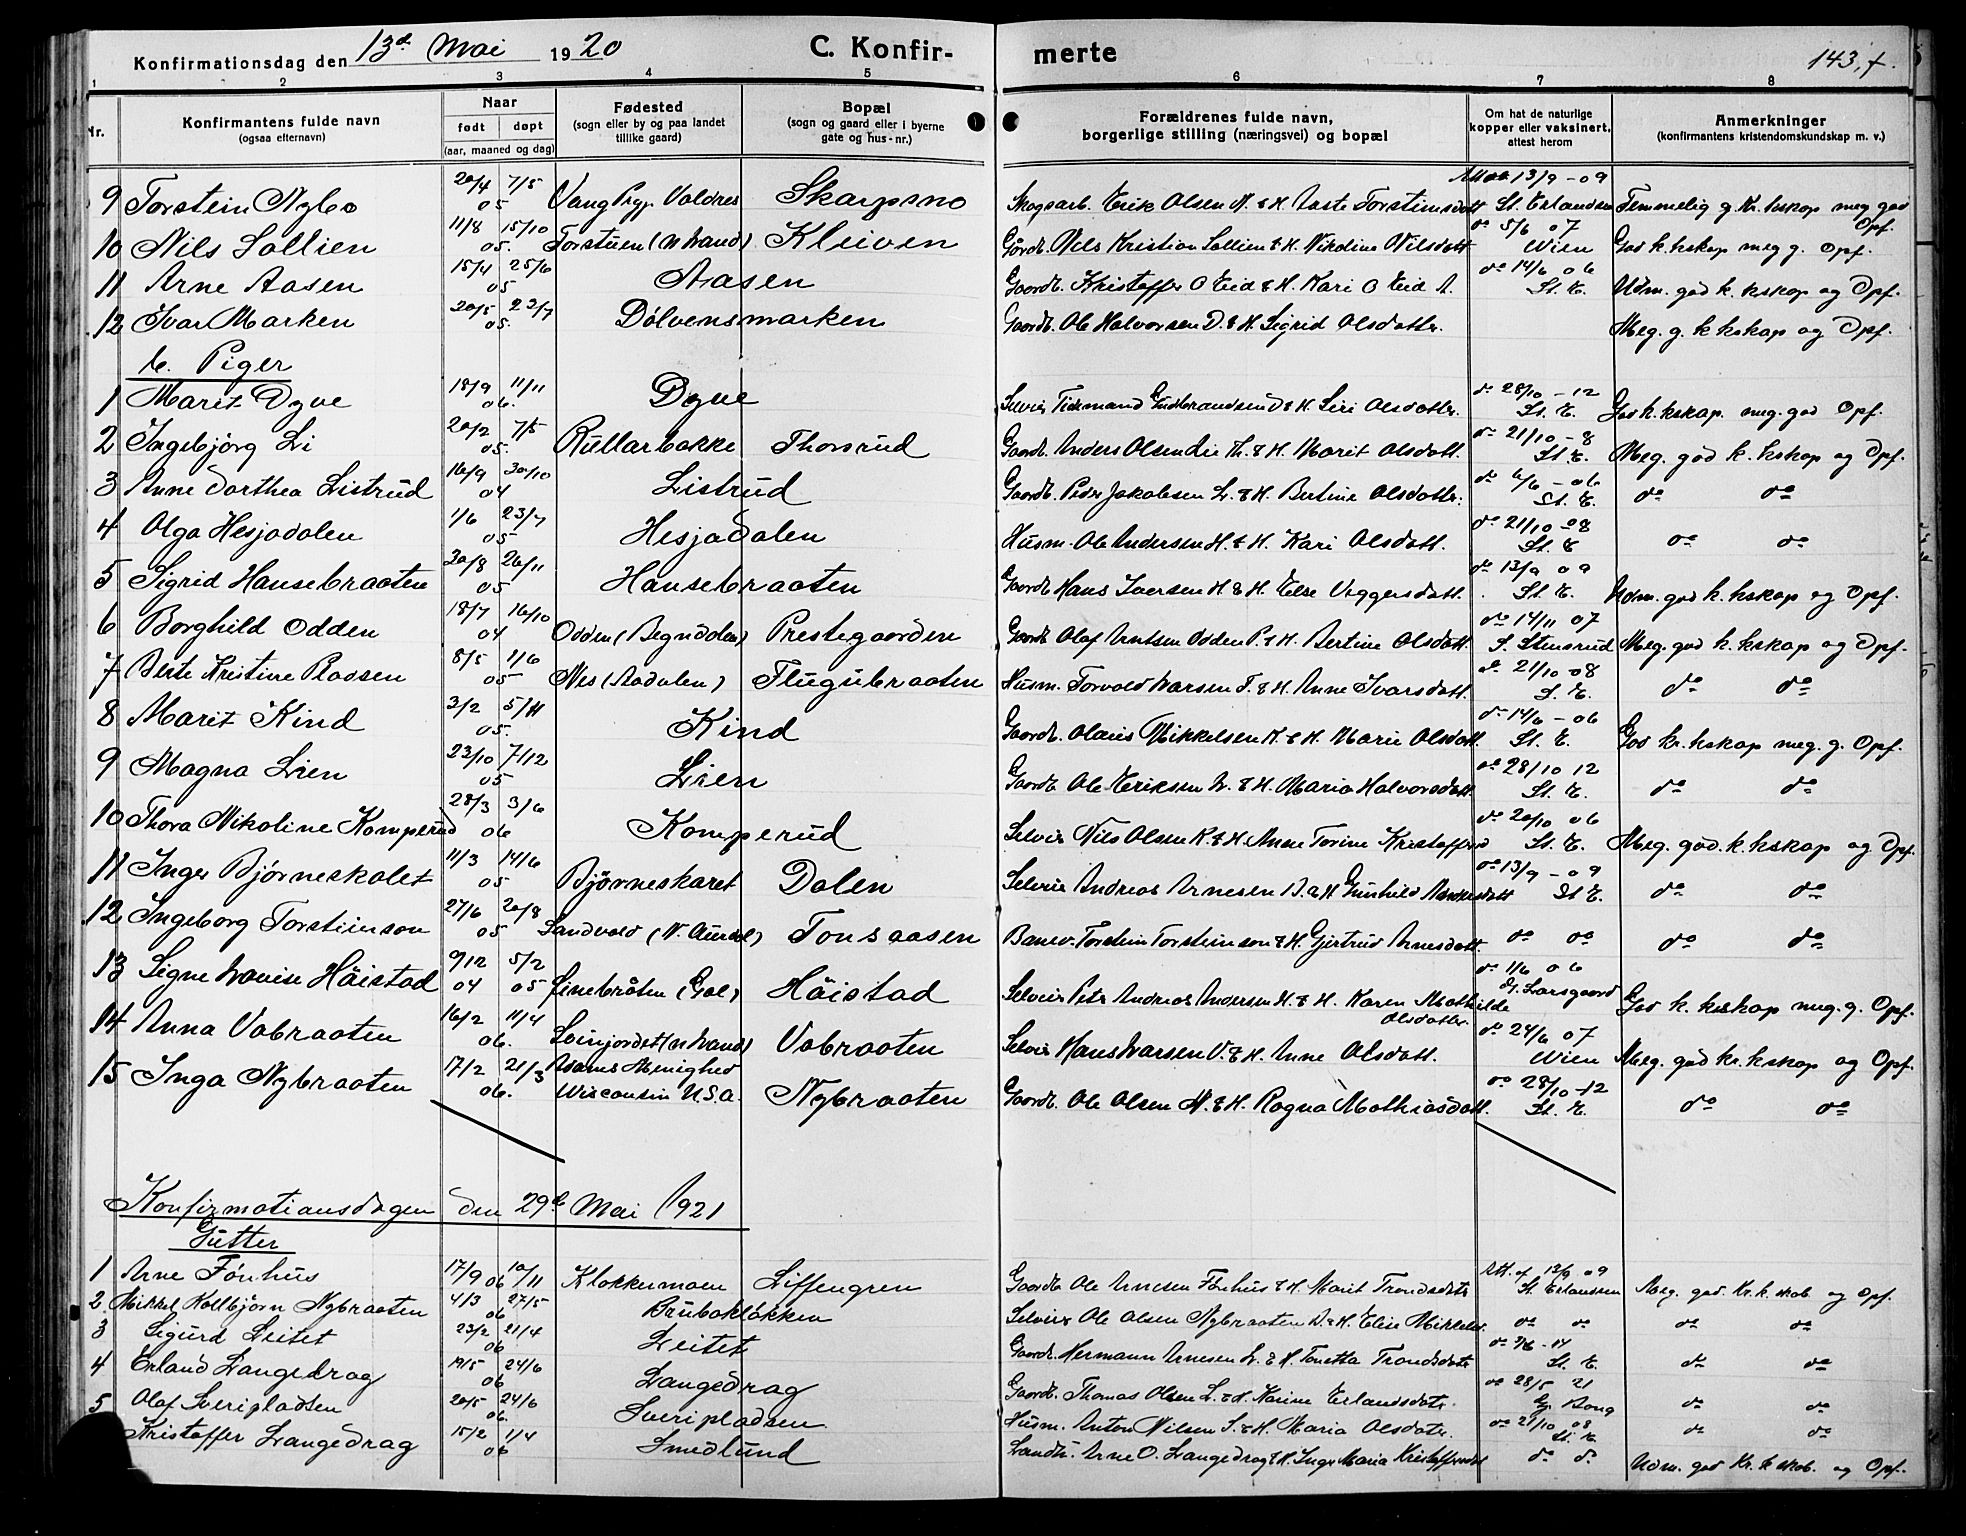 Konfirmationsdag den 13d Mai 1920 C. Konfir- merte 143, f.
1 2 3 4 5 6 7 8
Nr.
Konfirmantens fulde navn
(ogsaa efternavn)
Naar
født døpt
(aar, maaned og dag)
Fødested
(sogn eller by og paa landet
tillike gaard)
Bopæl
(sogn og gaard eller i byerne
gate og hus-nr.)
Forældrenes fulde navn,
borgerlige stilling (næringsvei) og bopæl
Om hat de naturlige
kopper eller vaksinert,
attest herom
Anmerkninger
(konfirmantens kristendomskundskap m. v.)
9 Torstein Nybo 20/4 7/5 05 Vang Prgj. Valdres Skarpsno Skogsarb. Erik Olsen N. & H. Aaste Torsteinsdatt Att 13/9 - 09 St. Erlandsen Temmelig g. Kr. kskap meg god Opf.
10 Nils Sollien 11/8 15/10 05. Torstuen (N Land) Kleiven Gårdb. Nils Kristian Sollien & H. Nikoline Nilsdatt do 5/6 07 Wien God k. kskap meg g. Opf.
11 Arne Aasen 15/4 25/6 05 Aasen Gaardb. Kristoffer O Eid & H. Kari O Eid A. do 14/6 06 St. E. Udm. god k. kskap og Opf.
12 Ivar Marken 20/5 23/7 05. Dølvensmarken Gaardb. Ole Halvorsen D. & H. Sigrid Olsdatter. Meg. g. k kskap og Opf.
b. Piger
1 Marit Dyve 18/9 11/11 06. Dyve Selveier Tidemand Gudbrandsen D & H. Siri Olsdatter. do 28/10 - 12 St. E. God k. kskap. meg. god Opf.
2 Ingebjørg Li 20/2 7/5 05. Rullarbakke Thorsrud Gaardb. Anders Olsen Lie Th. & H. Marit Olsdatt. do 21/10 - 8 St. E. Meg. god k. kskap og Opf.
3 Anne Dorthea Listrud 16/9 30/10 04 Listrud Gaardb. Peder Jakobsen L. & H. Bertine Olsdatter. do 6/6 - 06 St. E. do do
4 Olga Hesjadalen 1/6 23/7 05 Hesjadalen Husm. Ole Andersen H. & H. Kari Olsdatt. do 21/10 - 08 St. E do do
5 Sigrid Hansebraaten 20/8 26/11 05 Hansebraaten Gaardb Hans Iversen H & H. Else Viggersdatt. do 13/9 09 St. E. Udm. god k. kskap og Opf.
6 Borghild Odden 18/7 16/10 04 Odden (Begndalen) Prestegaarden Gaardb Olaf Arntsen Odden P. & H. Bertine Olsdatt. do 14/11 07 S. Stensrud Meg. god k. kskap og Opf.
7 Berte Kristine Plassen 8/5 1/6 05 Nes (Aadalen) Flugubraaten Husm. Torvald Larsen F. & H. Anne Ivarsdatt. do 21/10 08 S. E. do do
8 Marit Kind 3/2 5/11 05. Kind Gaardb. Olaus Mikkelsen K. & H. Marie Olsdatt do 14/6 - 06 St. E. God kr. kskap meg. g. Opf.
9 Magna Lien 23/10 7/12 05 Lien Gaardb. Ole Eriksen L. & H. Maria Halvorsdatt. do 28/10 12 St. E. do do
10 Thora Nikoline Komperud 28/3 3/6 06 Komperud Selveier Nils Olsen K. & H. Anne Torine Kristoffersd do 20/10 06 St. E. Meg. god. k. kskap og Opf.
11 Inger Bjørneskalet 11/3 14/6 05 Bjørneskaret Dalen Selveier Andreas Arnesen B. & H Gunhild do 13/9 - 09 St. E. do do
12 Ingeborg Torsteinson 27/6 20/8 05 Sandvold (N. Aurdal) Tonsaasen Banev. Torstein Torsteinson & H. Gjertrud Arnesdatt. do do do do
13 Signe Lovise Häistad 9/12 5/2 04 05 Finebråten (Gol) Häistad Selveier Peter Andreas Andersen H. & H. Karen Mathilde Olsdatter. do 1/6 06 Larsgaard God k. kskap meg. g. Opf.
14 Anna Vabraaten 16/2 11/4 06. (N Land) Vabraaten Selveier Hans Larsen V. & H. Anne Olsdatt. do 24/6 07 Wien Meg. god kr. kskap og Opf.
15 Inga Nybraaten 17/2 21/3 06. Adams Menighed Wisconsin U.S.A. Nybraaten Gaardb. Ole Olsen N. & H. Ragna Mathiasdatt. do 28/10 - 12 St. E. do do
Konfirmationsdagen den 29de Mai 1921
Gutter
1 Arne Fønhus 17/9 06 10/11 Klokkermoen Liffengren Gaardb Ole Arnesen Fønhus & H. Marit Trondsdatter Att. af 13/9 09 St. Erlandsen Meg. god. Kr. k skab og Opf.
2 Mikkel Kolbjørn Nybraaten 4/3 27/5 06 Brubakløkken Selveier Ole Olsen Nybraaten B. & H. Elise Mikkelsd. do do do do
3 Sigurd Leitet 23/2 21/4 06 Leitet Gaardb. Hermann Arnesen L. & H. Tonetta Trondsdatter St. E. do do
4 Erland Langedrag 19/5 24/6 06 Langedrag Gaardb. Thomas Olsen L. & H. Karine Erlandsdatter. do 28/5 21 G. Bong do do
5 Olaf Sveripladsen 20/5 24/6 06. Sveripladsen Husm. Anton Nilsen S. & H. Maria Olsdatter. do 21/10 08 St. E do do
Kristoffer Langedrag 15/2 1/4 06 Smedlund Landh. Arne O. Langedrag & H. Inger Maria Kristoffersdatt do do Udm. god Kr. k skab. og Opf.